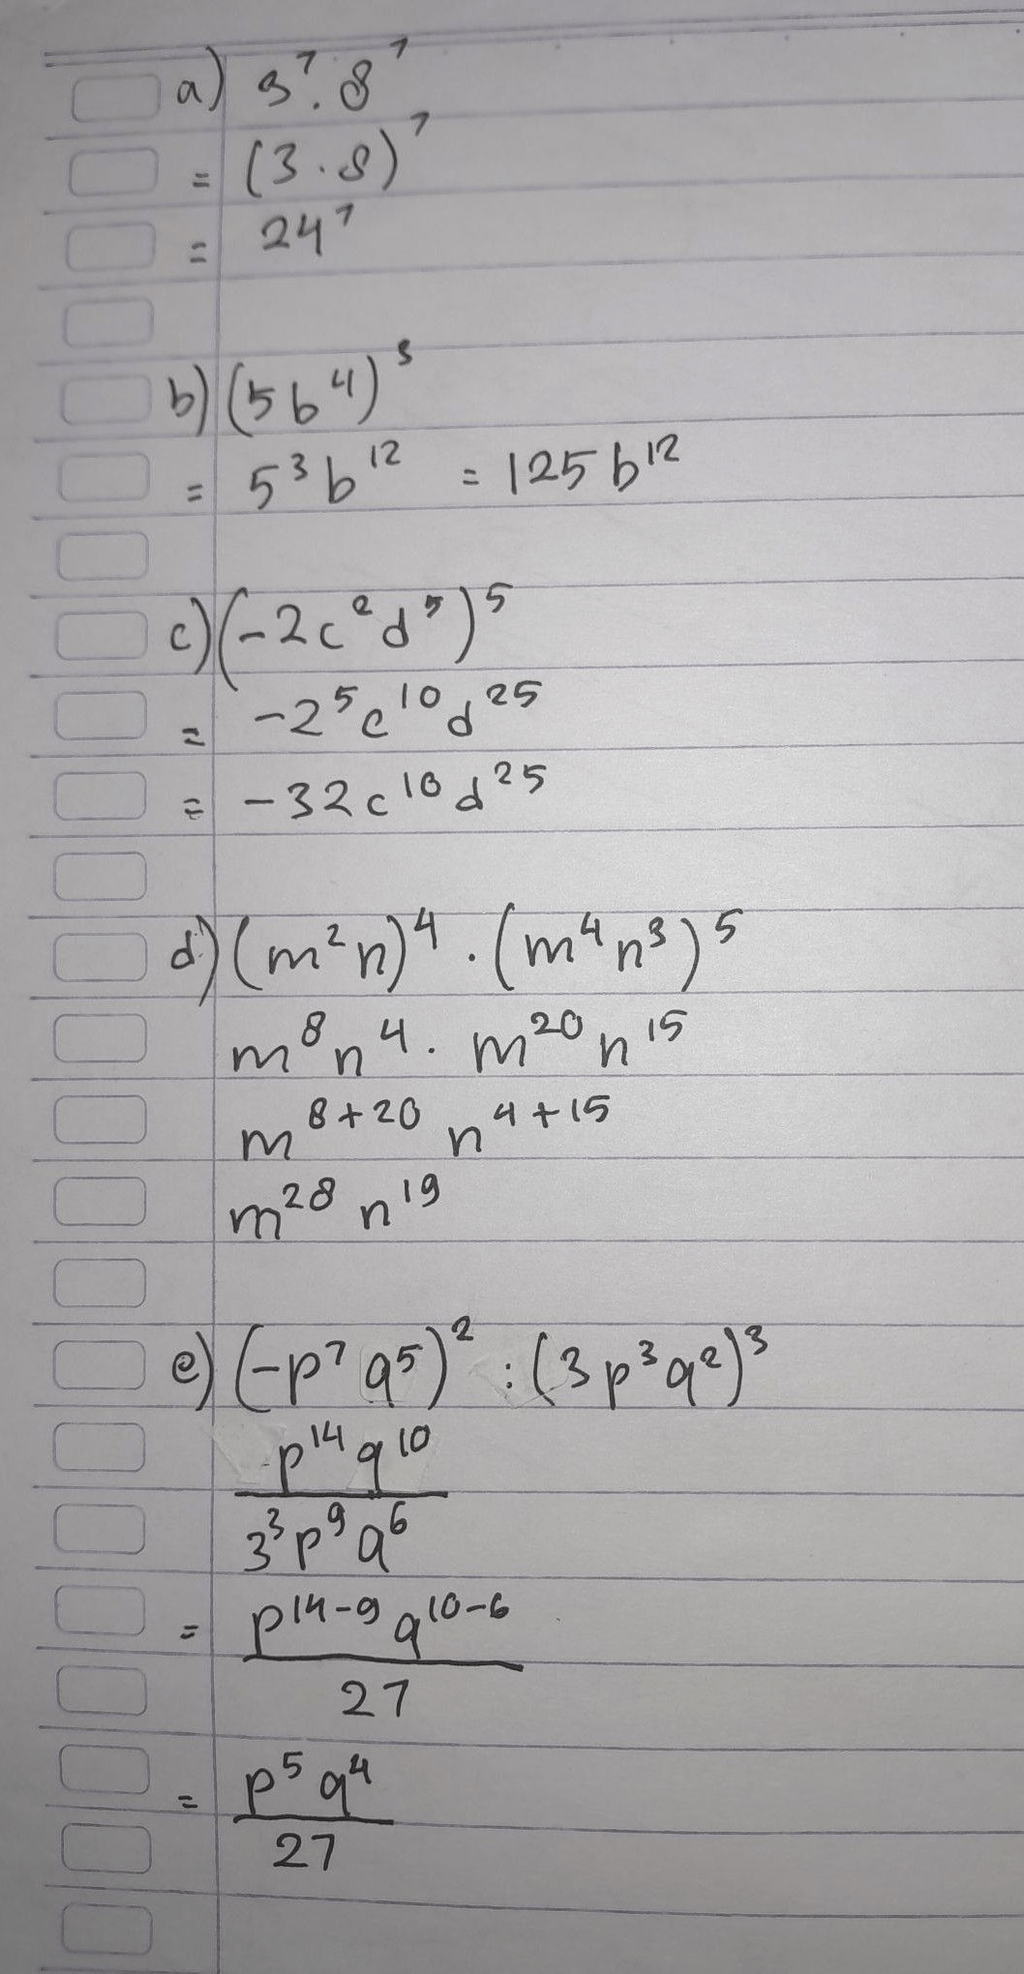 a) 3⁷. 8⁷
= (3.8)⁷
= 24⁷
b) (5b⁴)³
= 5³b¹² = 125b¹²
c) (-2c²d⁵)⁵
= -2⁵c¹⁰d²⁵
= -32c¹⁰d²⁵
d) (m²n)⁴ . (m⁴n³)⁵
m⁸n⁴. m²⁰n¹⁵
m⁸⁺²⁰ n⁴⁺¹⁵
m²⁸ n¹⁹
e) (-p⁷q⁵)² : (3p³q²)³
p¹⁴q¹⁰
3³p⁹q⁶
= p¹⁴⁻⁹q¹⁰⁻⁶
27
= p⁵q⁴
27